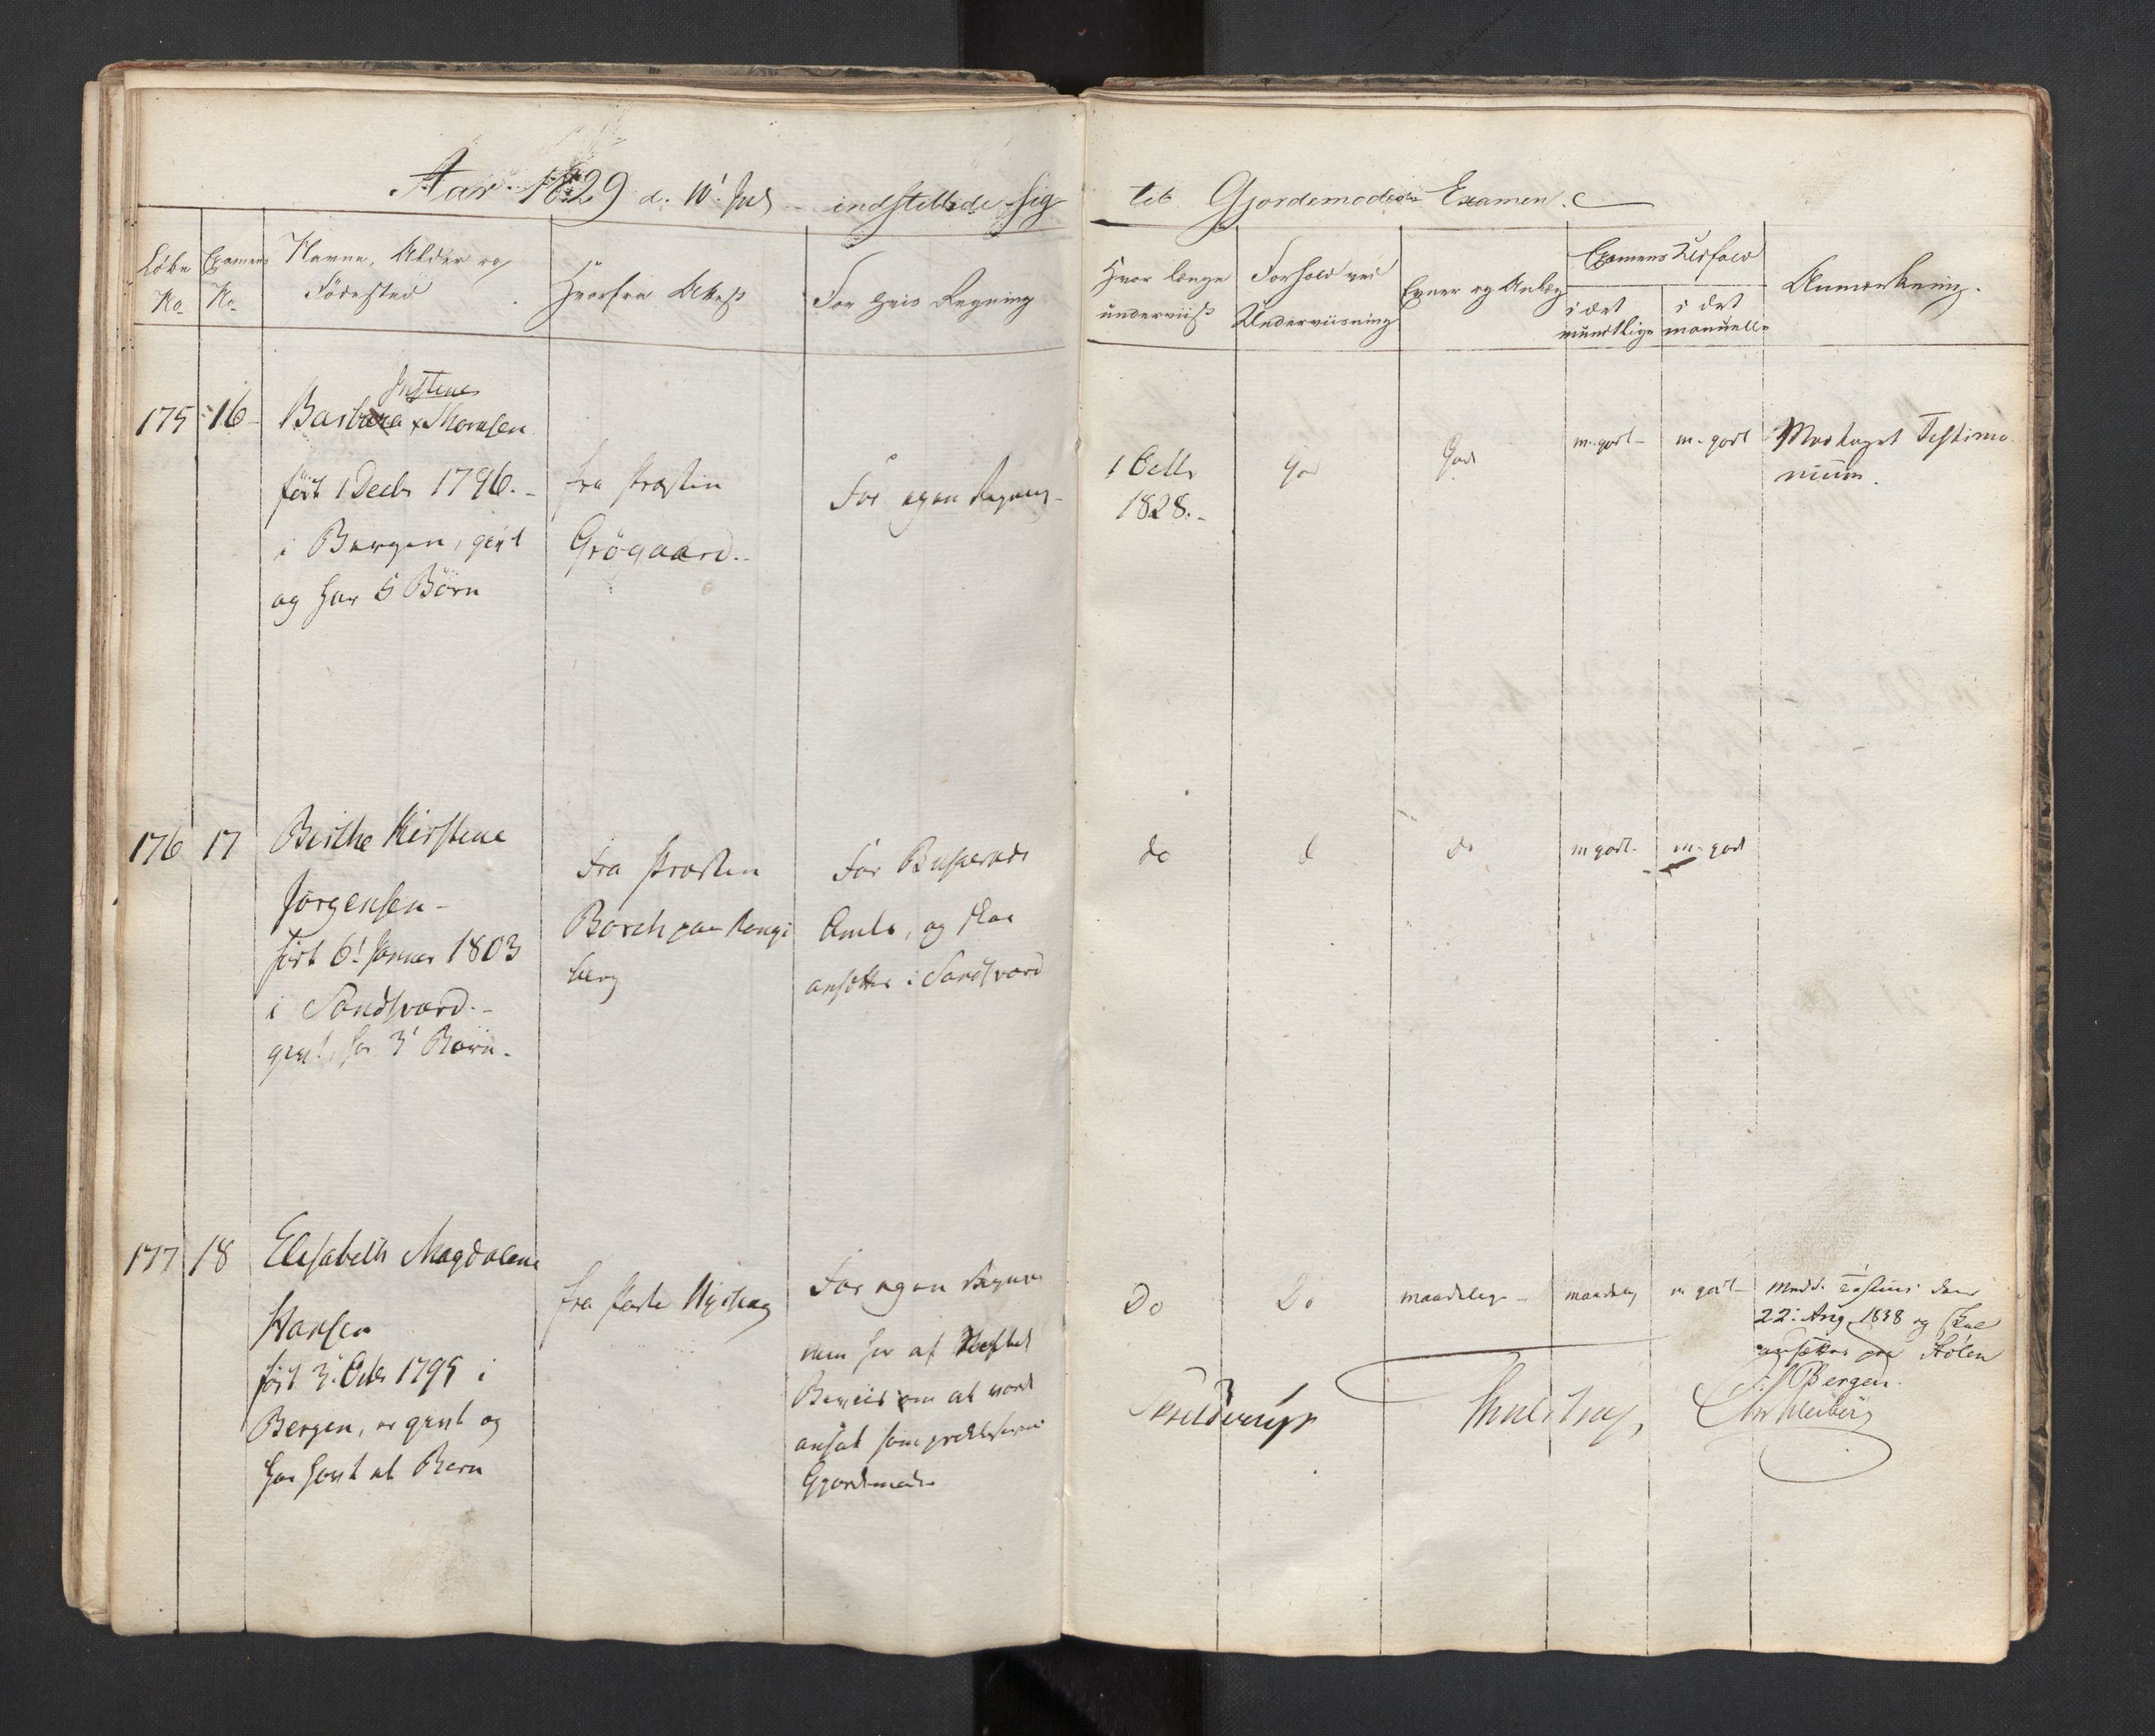 Aar 1829 d. 10' Jul indstillede sig
til Gjordemoder Examen.
Löbe No
Examens No
Navne, Alder og Födested
Hvorfra Attest
For hvis Regning
Hvor længe underviist
Forhold ved Underviisning
Evner og Anlæg
Examens Udfald
i det mundtlige
i det manuelle
Anmærkning.
175 16 Barbara Thomsen
Justine
födt 1 Decbr 1796.
i Bergen, gift
og har 5 Börn
fra Præsten
Grögaard.
For egen Regning
1 Octbr
1828.
God
God
m. godt
m. godt
Modtaget Testimo
nium.
176 17 Birthe Kirstine
Jörgensen
födt 6' Januar 1803
i Sandsværd.
gift, har 3 Börn.
Fra Præsten
Borch paa Kongs
berg
For Buskeruds
Amt, og skal
ansættes i Sandsværd
do
d
do
m godt.
m. godt
177 18 Elisabeth Magdalene
Hansen
födt 3 Octbr 1795 i
Bergen, er gift og
har havt et Barn
fra
For egen Regning
men har af
Beviis om at vorde
ansat som
Gjordemoder
Do
Do
maadelig
maadelig
m godt
Modt. den
22. Aug. 1838 og skal
ansættes paa Stölen
i Bergen.
Skjelderup
Thulstrup,